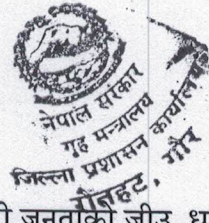 नेपाल सरकार
गृह मन्त्रालय
जिल्ला प्रशासन कार्यालय
रौतहट, गौर
जनताको जीउ